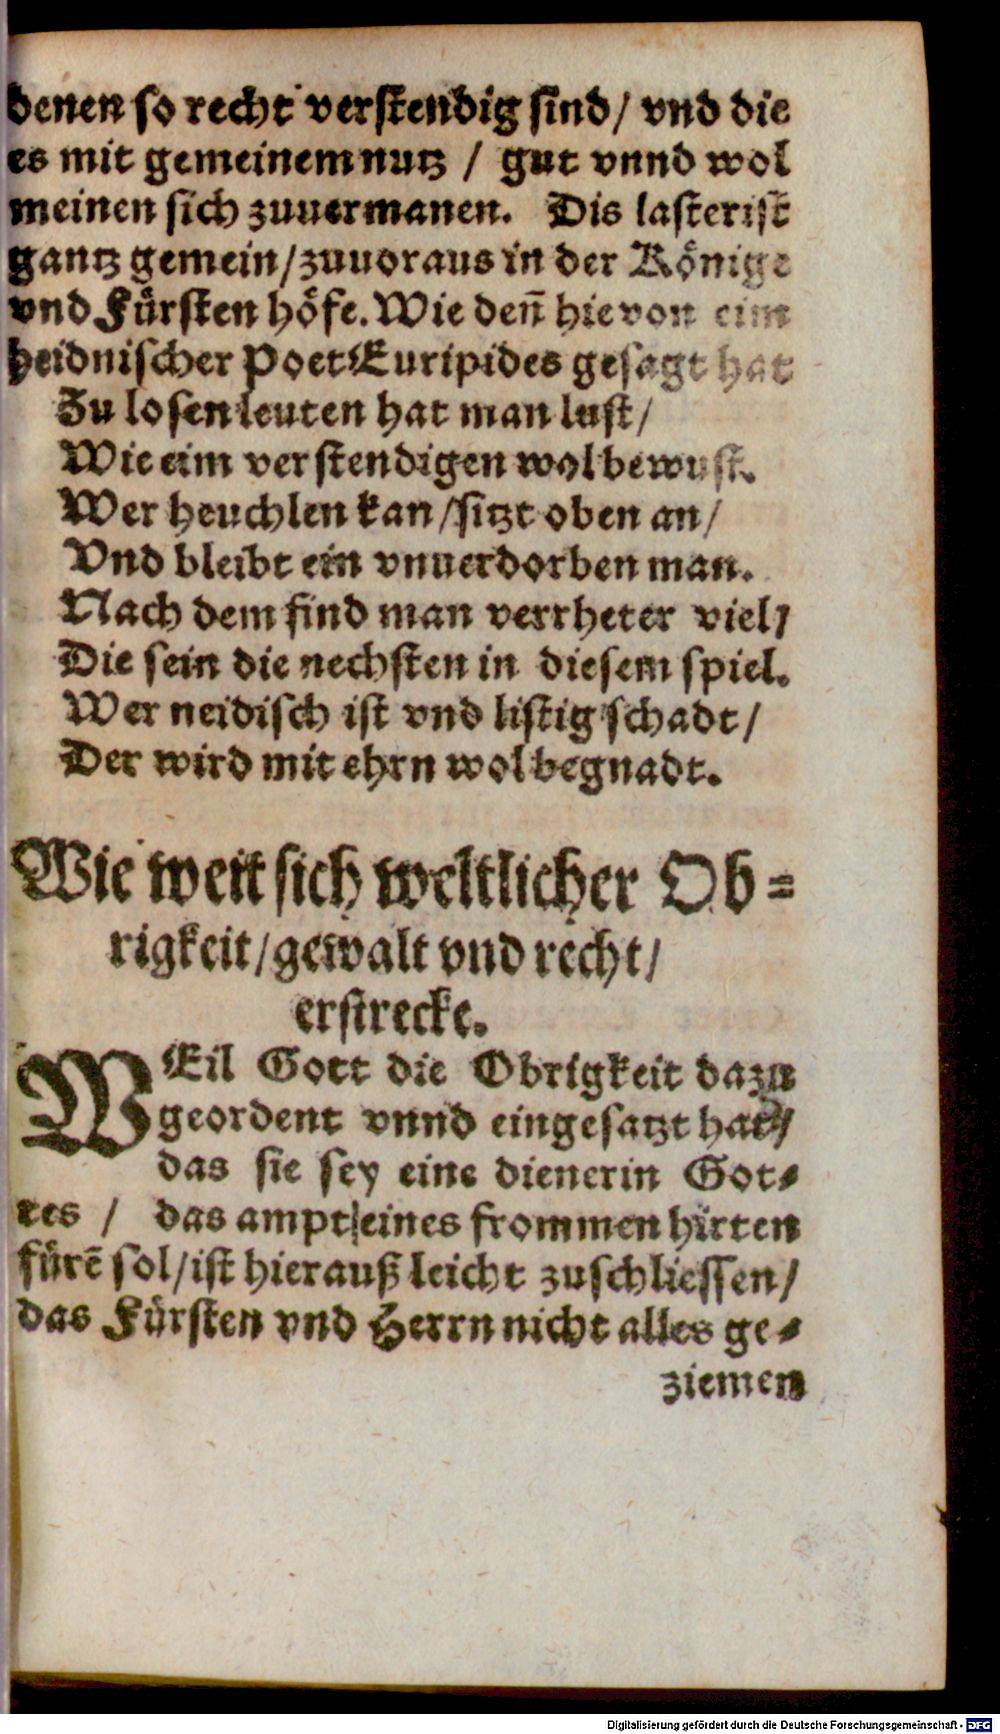 denen so recht verstendig sind/ vnd die
es mit gemeinem nutz / gut vnnd wol
meinen sich zuuermanen. Dis laster ist
gantz gemein/zuuoraus in der Könige
vnd Fürsten höfe. Wie deñ hie von eim
heidnischer Poet Euripides gesagt hat
Zu losen leuten hat man lust/
Wie eim verstendigen wol bewust.
Wer heuchlen kan/sitzt oben an/
Vnd bleibt ein vnuerdorben man.
Nach dem find man verrheter viel/
Die sein die nechsten in diesem spiel.
Wer neidisch ist vnd listig schadt/
Der wird mit ehrn wol begnadt.
Wie weit sich weltlicher Ob=
rigkeit/gewalt vnd recht/
erstrecke.
WEil Gott die Obrigkeit dazu
geordent vnnd eingesatzt hat/
das sie sey eine dienerin Got=
tes / das ampt eines frommen hirten
fürẽ sol/ist hierauß leicht zuschliessen/
das Fürsten vnd Herrn nicht alles ge=
ziemen
Digitalisierung gefördert durch die Deutsche Forschungsgemeinschaft - DFG